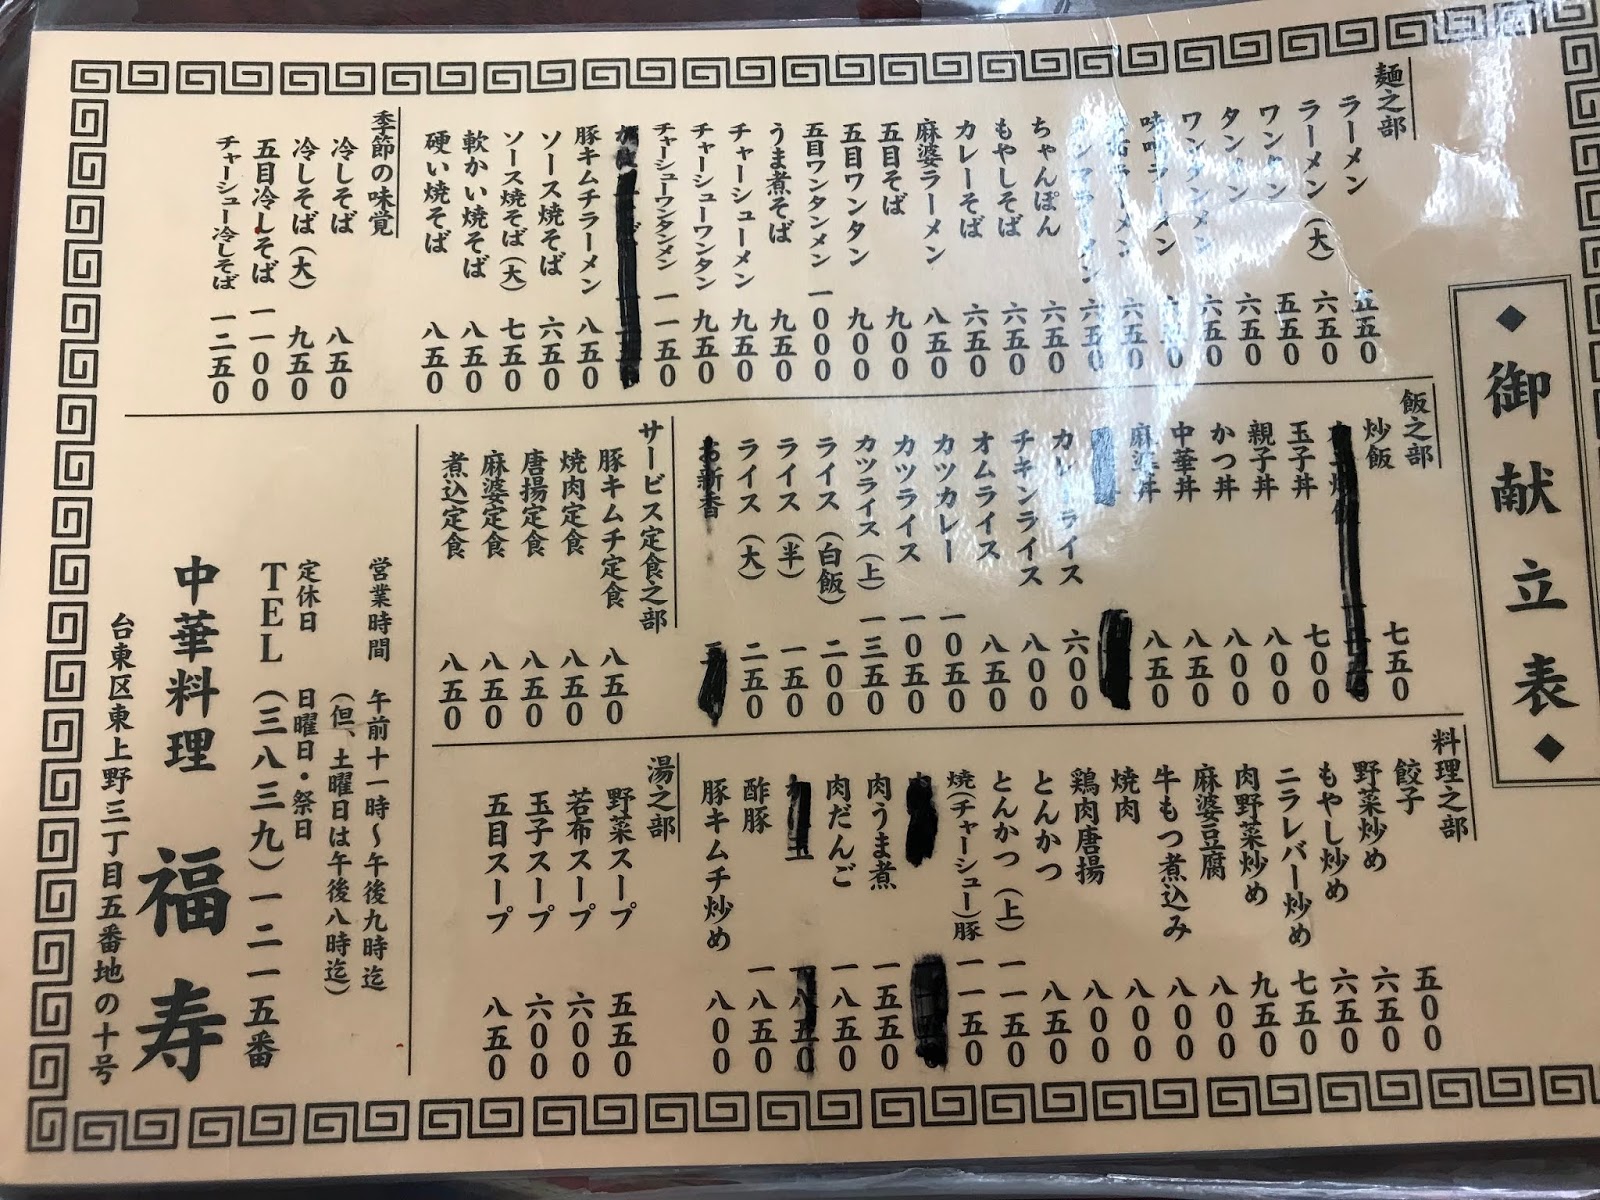 ◆御献立表◆
麺之部
ラーメン 五五0
ラーメン(大) 六五0
ワンタン 五五0
タンメン 六五0
ワンタンメン 六五0
味噌ラーメン
ラーメン 六五0
六五0
ちゃんぽん 六五0
もやしそば 六五0
カレーそば 六五0
麻婆ラーメン 八五0
五目そば 九00
五目ワンタン 九00
五目ワンタンメン 一000
うま煮そば 九五0
チャーシューメン 九五0
チャーシューワンタン 九五0
チャーシューワンタンメン 一一五0
豚キムチラーメン 八五0
ソース焼そば 六五0
ソース焼そば(大) 七五0
軟かい焼そば 八五0
硬い焼そば 八五0
季節の味覚
冷しそば 八五0
冷しそば(大) 九五0
五目冷しそば 一一00
チャーシュー冷しそば 一二五0
飯之部
炒飯 七五0
玉子丼 七00
親子丼 八00
かつ丼 八00
中華丼 八五0
麻婆丼 八五0
カレーライス 六00
チキンライス 八00
オムライス 八五0
カツカレー 一0五0
カツライス 一0五0
カツライス(上) 一三五0
ライス(白飯) 二00
ライス(半) 一五0
ライス(大) 二五0
お新香
サービス定食之部
豚キムチ定食 八五0
焼肉定食 八五0
唐揚定食 八五0
麻婆定食 八五0
煮込定食 八五0
料理之部
餃子 五00
野菜炒め 六五0
もやし炒め 六五0
ニラレバー炒め 七五0
肉野菜炒め 九五0
麻婆豆腐 八00
牛もつ煮込み 八00
焼肉 八00
鶏肉唐揚 八00
とんかつ 八五0
とんかつ(上) 一一五0
焼(チャーシュー)豚 一一五0
肉うま煮 一五五0
肉だんご 一八五0
酢豚 一八五0
豚キムチ炒め 八00
湯之部
野菜スープ 五五0
若布スープ 六00
玉子スープ 六00
五目スープ 八五0
営業時間 午前十一時〜午後九時迄
(但、土曜日は午後八時迄)
定休日 日曜日・祭日
TEL(三八三九)一二一五番
中華料理 福寿
台東区東上野三丁目五番地の十号